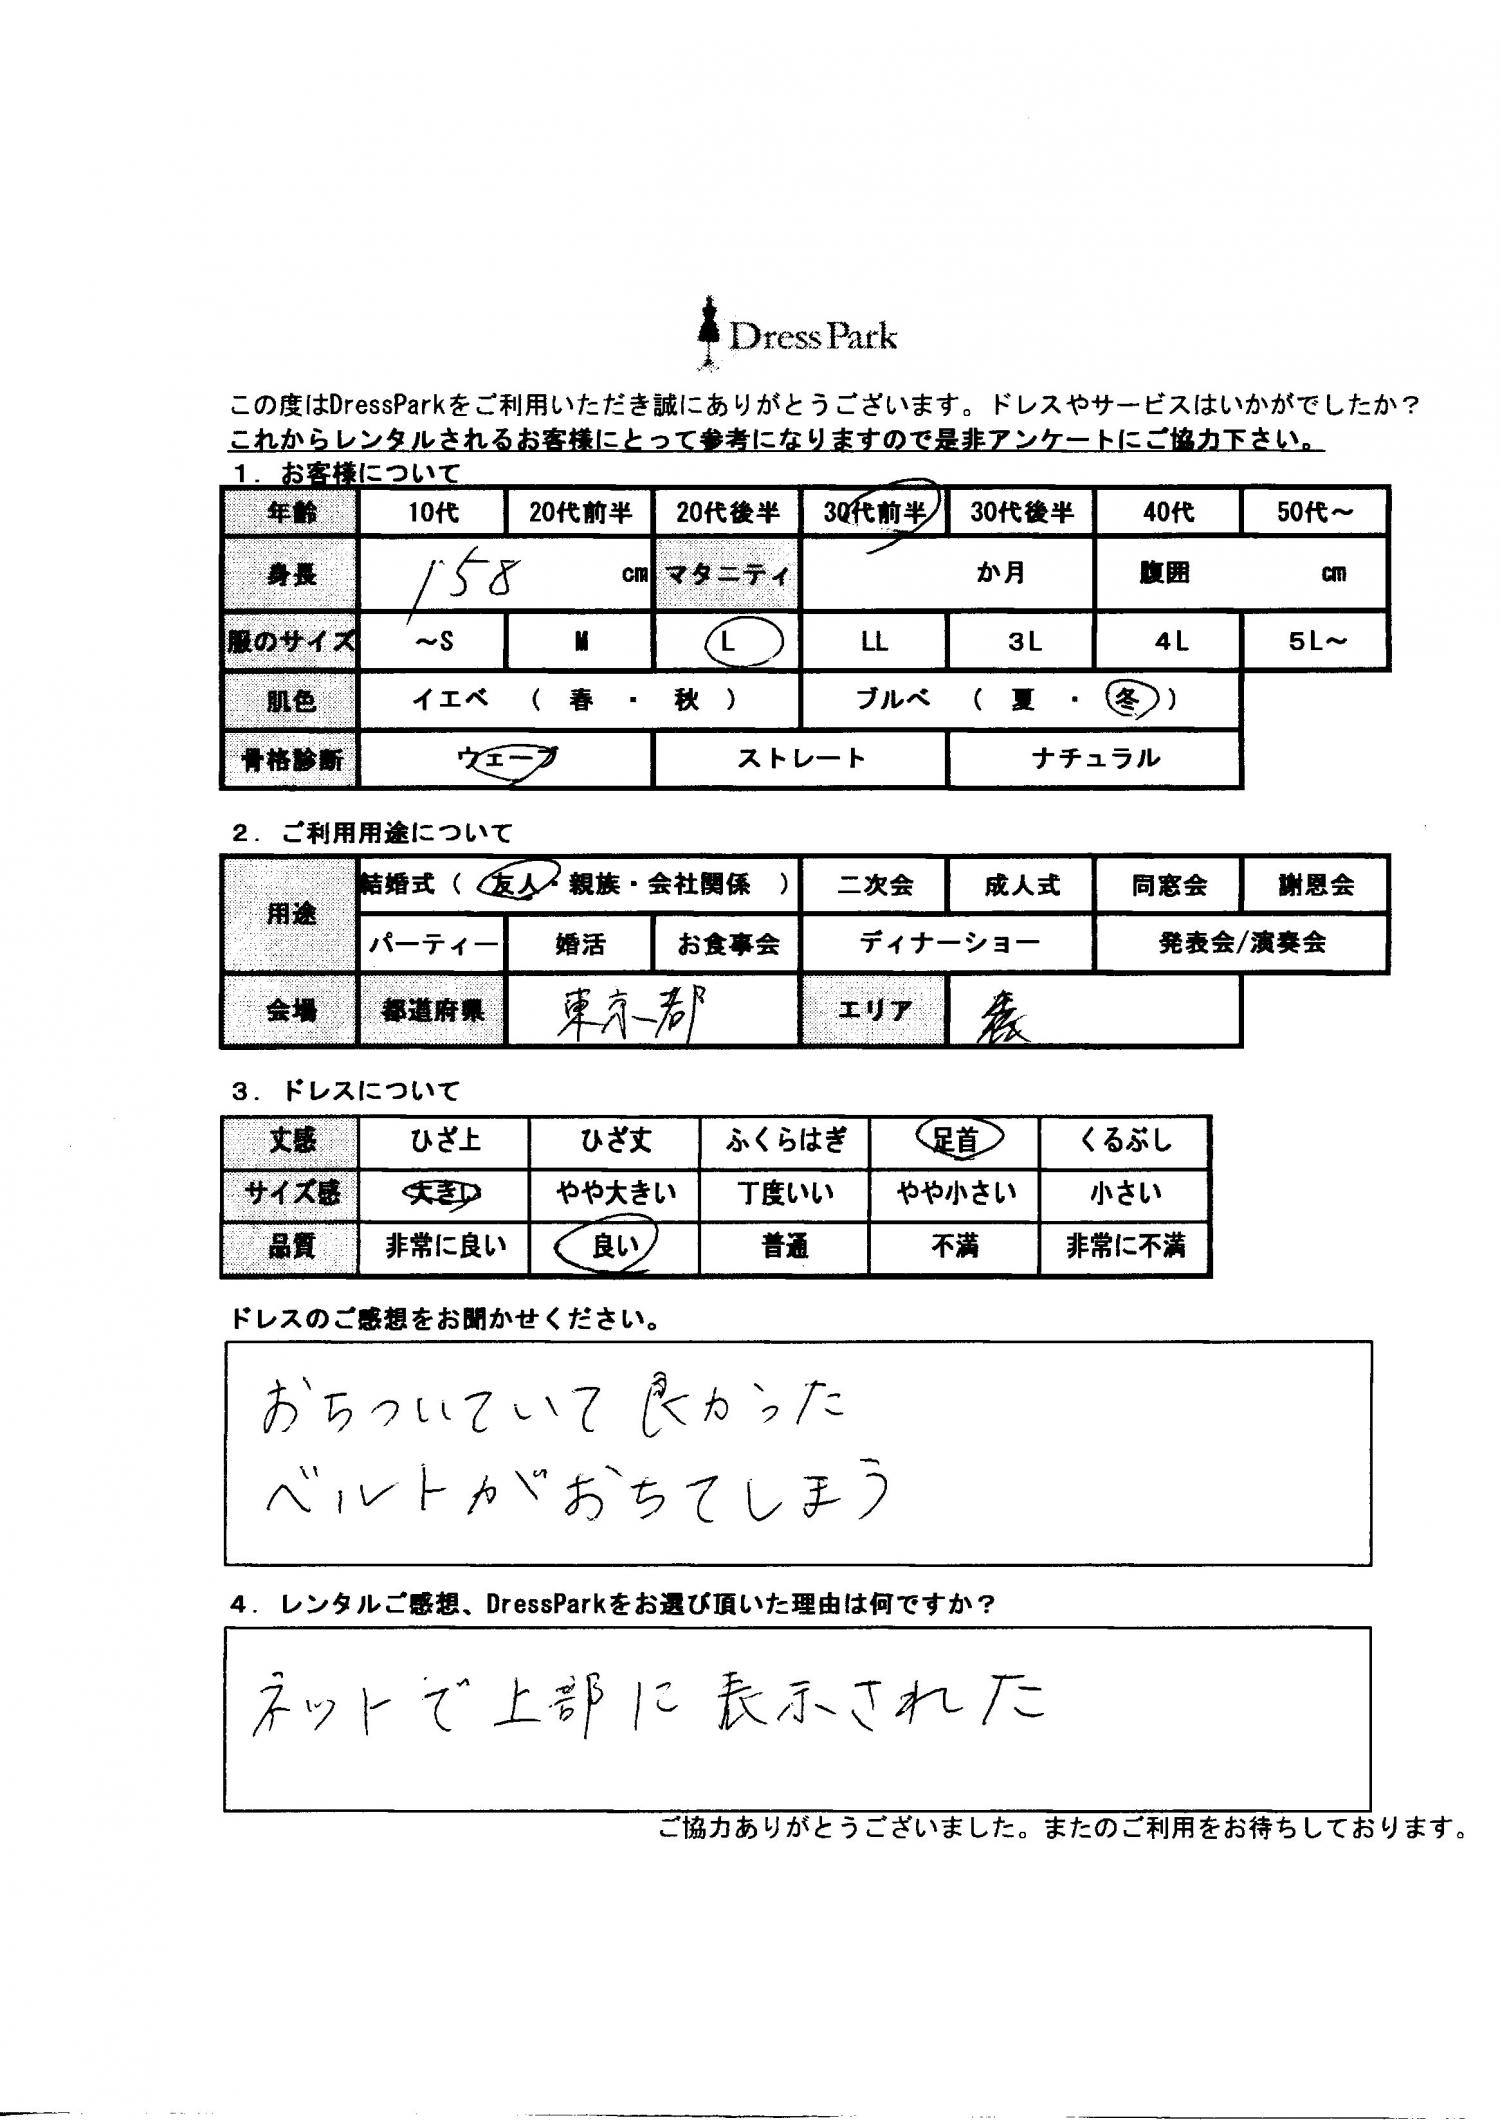 DressPark
この度はDressParkをご利用いただき誠にありがとうございます。ドレスやサービスはいかがでしたか？
これからレンタルされるお客様にとって参考になりますので是非アンケートにご協力下さい。
1. お客様について
年齢 10代 20代前半 20代後半 30代前半 30代後半 40代 50代～
身長 158 cm マタニティ か月 腹囲 cm
服のサイズ ～S M L LL 3L 4L 5L～
肌色 イエベ （ 春 ・ 秋 ） ブルベ （ 夏 ・ 冬 ）
骨格診断 ウェーブ ストレート ナチュラル
2. ご利用用途について
用途 結婚式（ 友人・親族・会社関係 ） 二次会 成人式 同窓会 謝恩会
パーティー 婚活 お食事会 ディナーショー 発表会/演奏会
会場 都道府県 東京都 エリア
3. ドレスについて
丈感 ひざ上 ひざ丈 ふくらはぎ 足首 くるぶし
サイズ感 大きい やや大きい 丁度いい やや小さい 小さい
品質 非常に良い 良い 普通 不満 非常に不満
ドレスのご感想をお聞かせください。
おちついていて良かった
ベルトがおちてしまう
4. レンタルご感想、DressParkをお選び頂いた理由は何ですか？
ネットで上部に表示された
ご協力ありがとうございました。またのご利用をお待ちしております。